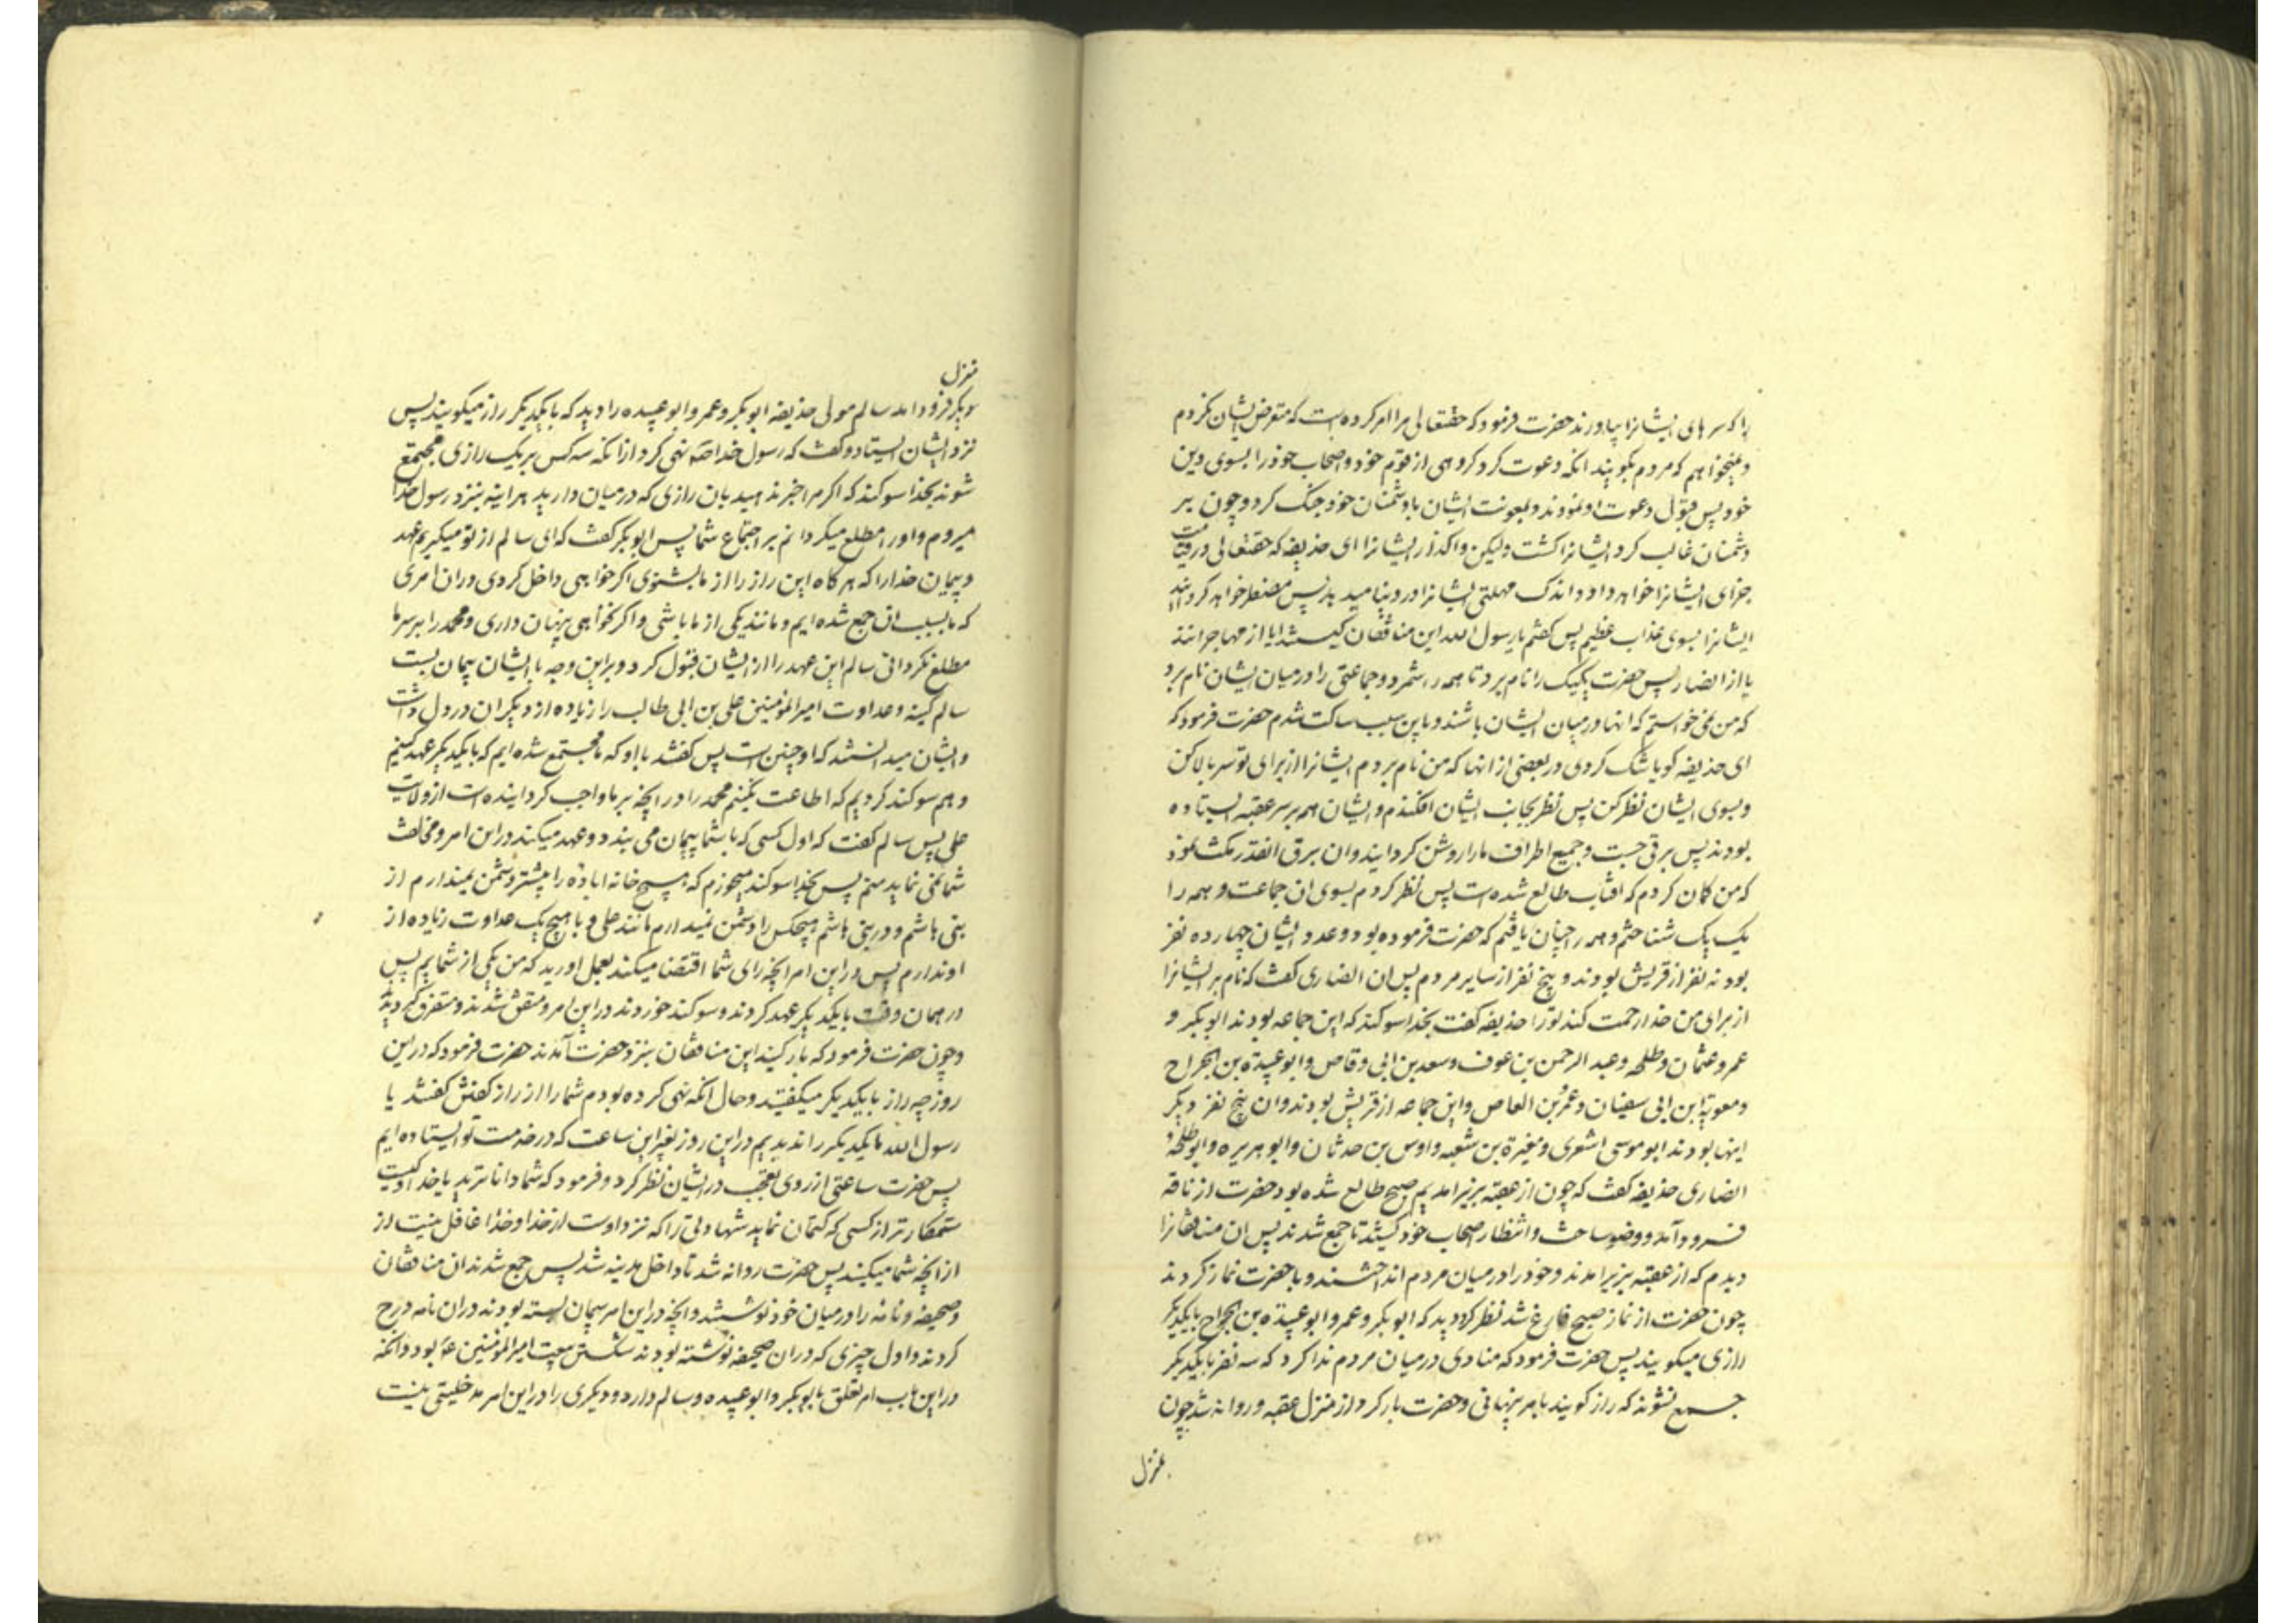 را که سرهای ایشانرا بیاورند حضرت فرمود که حقتعالی مرا امر کرده است که متعرض ایشان نکردم
و نمیخواهم که مردم بگویند انکه دعوت کرد کروهی از قوم خود و اصحاب خود را بسوی دین
خود پس قبول دعوت او نمودند و بمعونت ایشان با دشمنان خود جنک کرد و چون بر
دشمنان غالب کرد ایشانرا کشت ولیکن واکذار ایشانرا ای حذیفه که حقتعالی در قیامت
جزای ایشانرا خواهد داد و اندک مهلتی ایشانرا در دنیا میدهد پس مضطر خواهد کردانید
ایشانرا بسوی عذاب عظیم پس کفتم یا رسول الله این منافقان کیستند ایا از مهاجرانند
یا از انصار پس حضرت یکیک را نام برد تا همه را شمرد و جماعتی را در میان ایشان نام برد
که من نمی خواستم که انها در میان ایشان باشند و باین سبب ساکت شدم حضرت فرمود که
ای حذیفه کویا شک کردی در بعضی از انها که من نام بردم ایشانرا از برای تو سر بالا کن
و بسوی ایشان نظر کن پس نظر بجانب ایشان افکندم و ایشان همه بر سر عقبه ایستاده
بودند پس برقی جست و جمیع اطراف ما را روشن کردانید و ان برق انقدر مکث نمود
که من کمان کردم که افتاب طالع شده است پس نظر کردم بسوی ان جماعت و همه را
یک یک شناختم و همه را چنان یافتم که حضرت فرموده بود و عدد ایشان چهارده نفر
بود نه نفر از قریش بودند و پنج نفر از سایر مردم پس ان انصاری کفت که نام بر ایشانرا
از برای من خدا رحمت کند تو را حذیفه کفت بخدا سوکند که این جماعه بودند ابوبکر و
عمر و عثمان و طلحه و عبد الرحمن بن عوف و سعد بن ابی وقاص و ابو عبیدة بن الجراح
و معویة ابن ابی سفیان و عمرو بن العاص و این جماعه از قریش بودند و ان پنج نفر دیکر
اینها بودند ابو موسی اشعری و مغیرة بن شعبه و اوس بن حدثان و ابو هریره و ابو طلحهٔ
انصاری حذیفه کفت که چون از عقبه بزیر امدیم صبح طالع شده بود حضرت از ناقه
فرود آمد و وضو ساخت و انتظار اصحاب خود کشید تا جمع شدند پس ان منافقانرا
دیدم که از عقبه بزیر امدند و خود را در میان مردم انداختند و با حضرت نماز کردند
چون حضرت از نماز صبح فارغ شد نظر کرد دید که ابوبکر و عمر و ابو عبیدة بن الجراح با یکدیکر
رازی میکویند پس حضرت فرمود که منادی در میان مردم ندا کرد که سه نفر با یکدیکر
جمع نشوند که راز کویند بامر پنهانی و حضرت بار کرد از منزل عقبه و روانه شد چون
بمنزل
منزل
دیکر فرود امد سالم مولی حذیفه ابوبکر و عمر و ابو عبیده را دید که با یکدیکر راز میکویند پس
نزد ایشان ایستاد و کفت که رسول خدا نهی کرد از انکه سه کس بر یک رازی مجتمع
شوند بخدا سوکند که اکر مرا خبر ندهید بان رازی که در میان دارید هراینه بنزد رسول خدا
میروم و او را مطلع میکردانم بر اجتماع شما پس ابوبکر کفت که ای سالم از تو میکیریم عهد
و پیمان خدا را که هر کاه این راز را از ما بشنوی اکر خواهی داخل کردی در ان امری
که ما بسبب ان جمع شده ایم و مانند یکی از ما باشی و اکر نخواهی پنهان داری و محمد را بر سر ما
مطلع نکردانی سالم این عهد را از ایشان قبول کرد و براین وجه با ایشان پیمان بست
سالم کینه و عداوت امیر المؤمنین علی بن ابی طالب را زیاده از دیکران در دل داشت
و ایشان میدانستند که او چنین است پس کفتند با او که ما مجتمع شده ایم که با یکدیکر عهد کنیم
و هم سوکند کردیم که اطاعت نکنیم محمد را در انچه بر ما واجب کردانیده است از ولایت
علی پس سالم کفت که اول کسی که با شما پیمان می بندد و عهد میکند در این امر و مخالفت
شما نمی نماید منم پس بخدا سوکند میخورم که هیچ خانه اباده را بیشتر دشمن نمیدارم از
بنی هاشم و در بنی هاشم هیچکس را دشمن نمیدارم مانند علی و با هیچ یک عداوت زیاده از
او ندارم پس در این امر انچه رای شما اقتضا میکند بعمل اورید که من یکی از شمایم پس
در همان وقت با یکدیکر عهد کردند و سوکند خوردند در این امر و متفق شدند و متفرق کردیدند
و چون حضرت فرمود که بار کنید این منافقان بنزد حضرت آمدند حضرت فرمود که در این
روز چه راز با یکدیکر میکفتید و حال انکه نهی کرده بودم شما را از راز کفتن کفتند یا
رسول الله ما یکدیکر را ندیدیم در این روز بغیر این ساعت که در خدمت تو ایستاده ایم
پس حضرت ساعتی از روی تعجب در ایشان نظر کرد و فرمود که شما داناترید یا خدا و کیست
ستمکارتر از کسی که کتمان نماید شهادتی را که نزد اوست از خدا و خدا غافل نیست از
از انچه شما میکنید پس حضرت روانه شد تا داخل مدینه شد پس جمع شدند ان منافقان
و صحیفه و نامه را در میان خود نوشتند و انچه در این امر پیمان بسته بودند در ان نامه درج
کردند و اول چیزی که در ان صحیفه نوشته بودند شکستن بیعت امیر المؤمنین ع بود و انکه
در این باب امر تعلق بابوبکر و ابو عبیده و سالم دارد و دیکری را در این امر مدخلیتی نیست